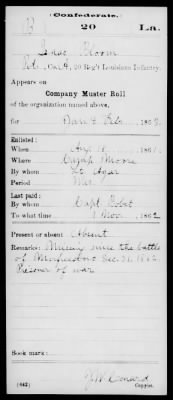 Confederate.
B 20 La.
Isaac Bloom
Pvt., Co. A, 20 Reg't Louisiana Infantry.
Appears on
Company Muster Roll
of the organization named above,
for Jan & Feb, 1863.
Enlisted:
When Aug 18, 1861.
Where Camp Moore
By whom Lt. Agar
Period War
Last paid:
By whom Capt
To what time 1 Nov, 1862
Present or absent Absent
Remarks: Missing since the battle
of Murfreesboro Dec. 31 1862
Prisoner of war
Book mark:
(642) Copyist.